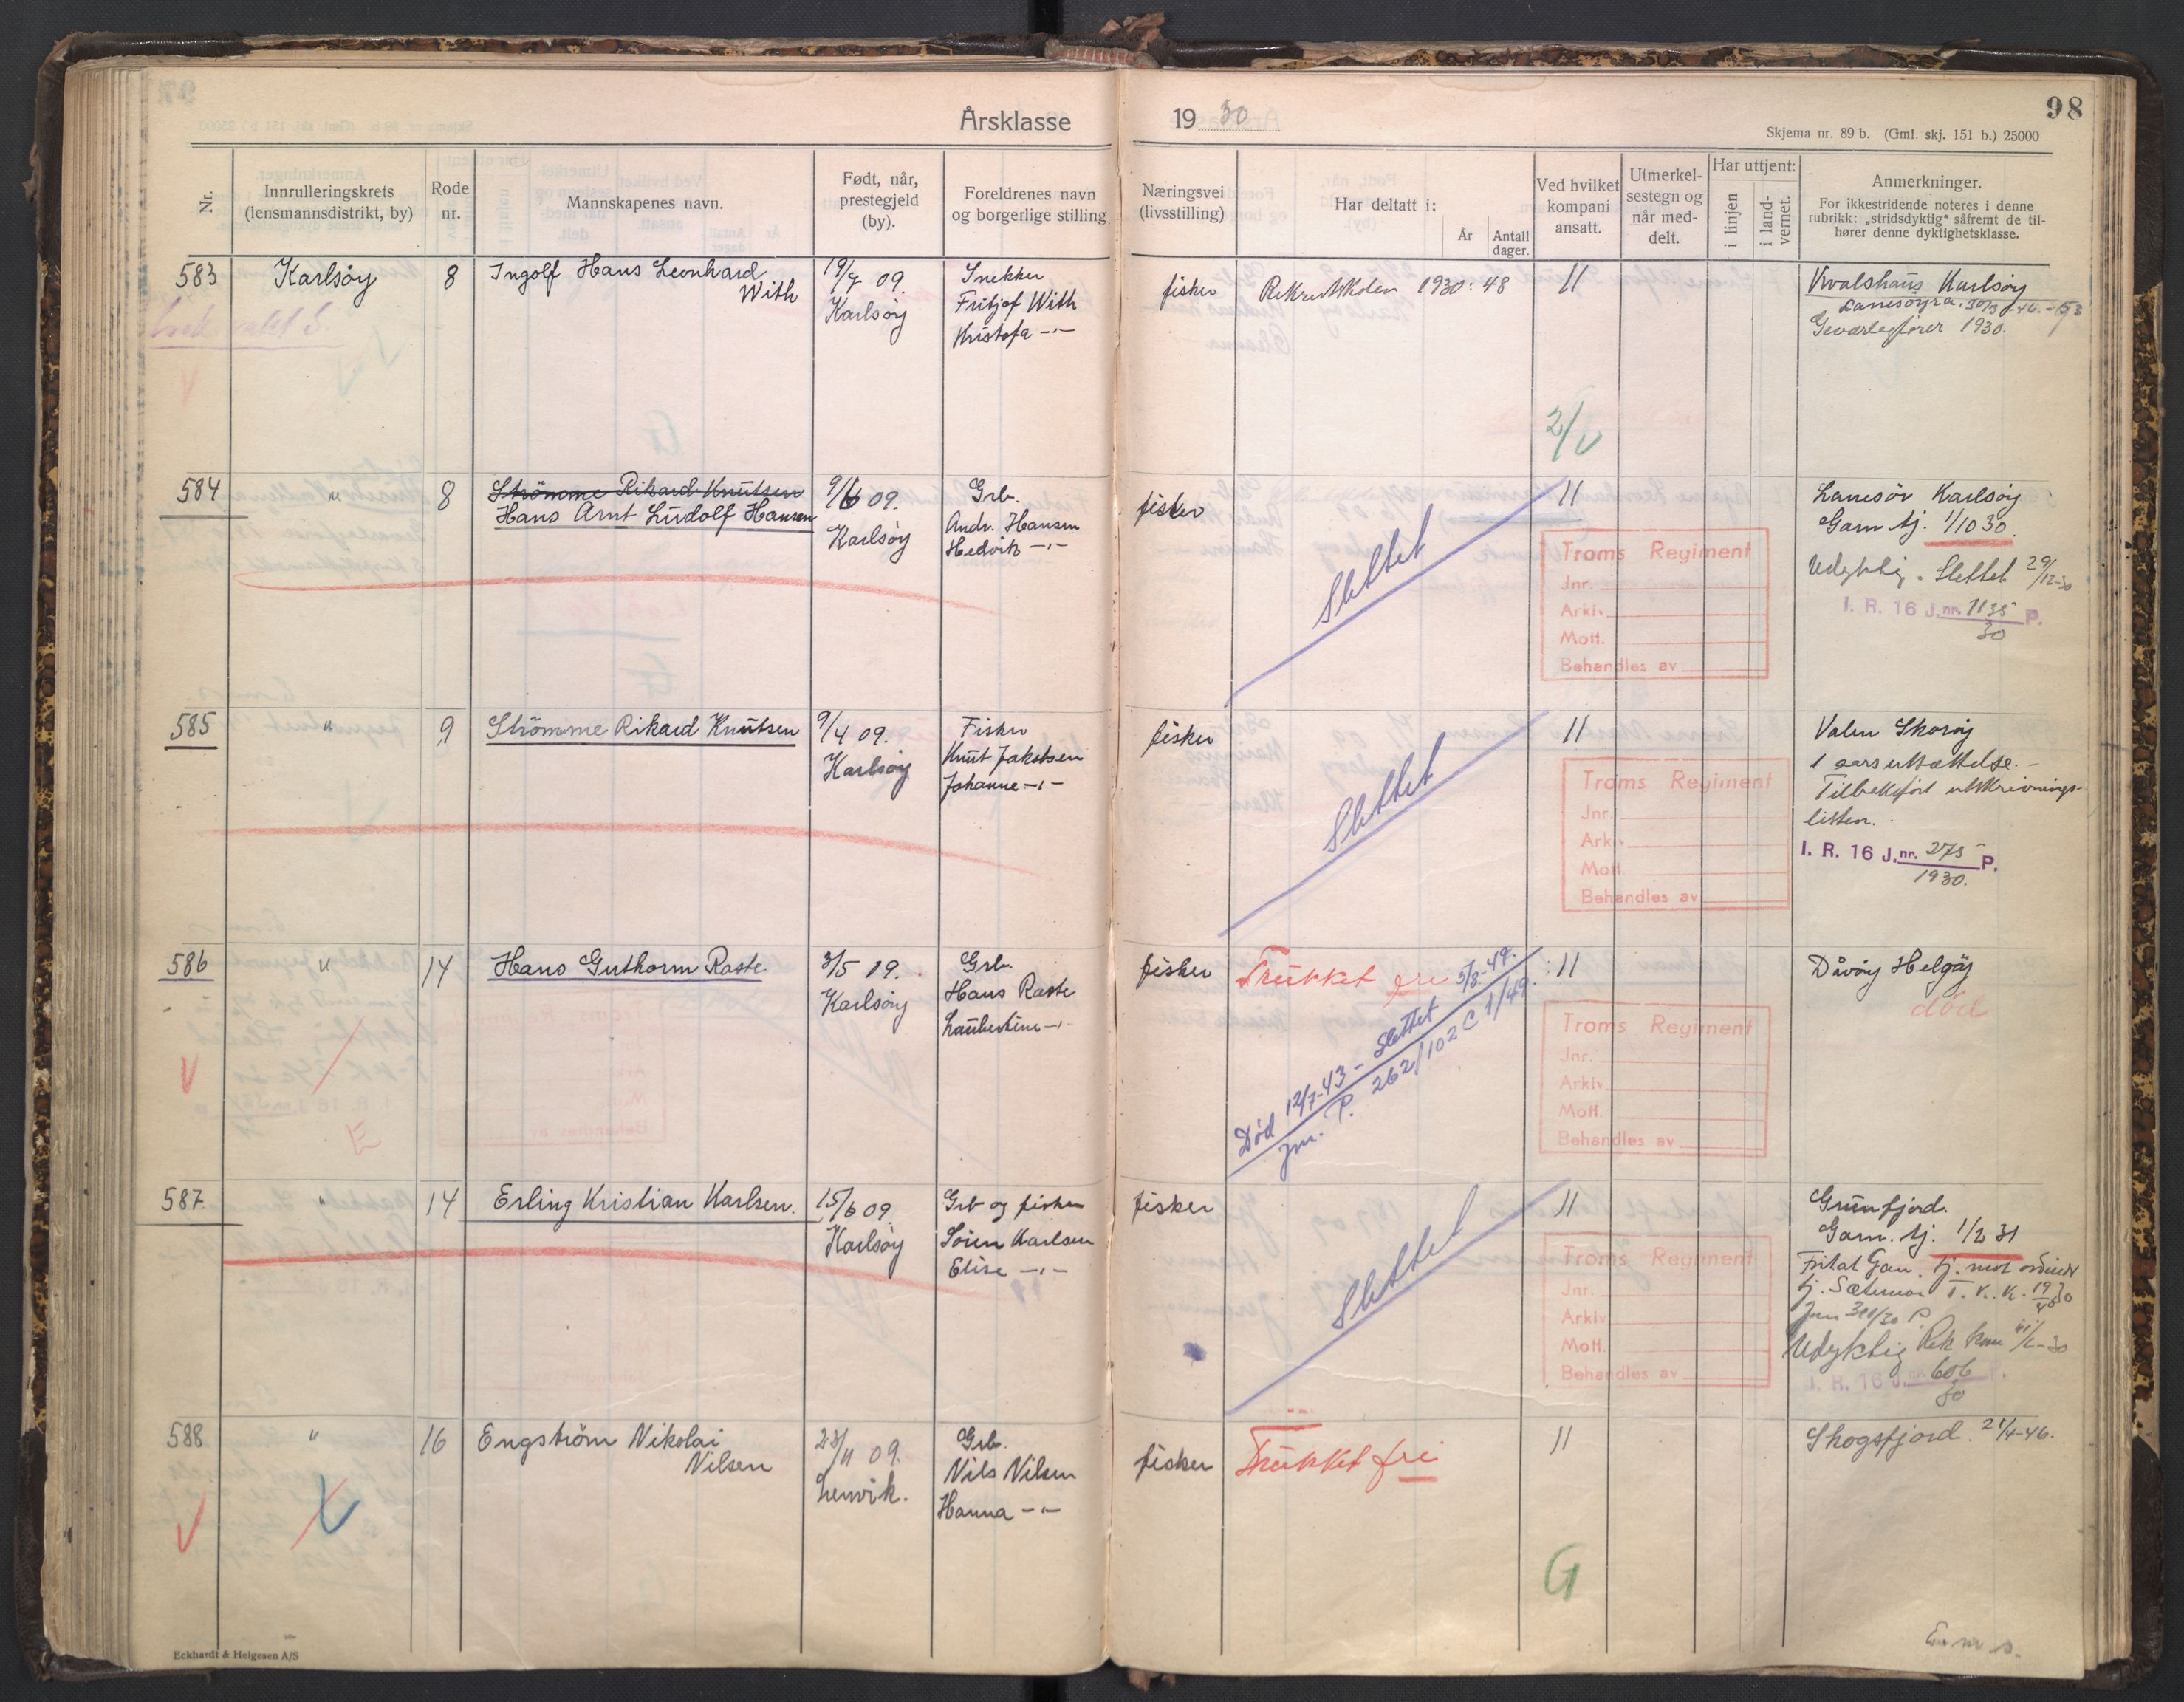 98
Årsklasse 1930
Skjema nr. 89 b. (Gml. skj. 151 b.) 25000
Nr.
Innrulleringskrets
(lensmannsdistrikt, by)
Rode
nr.
Mannskapenes navn.
Født, når,
prestegjeld
(by).
Foreldrenes navn
og borgerlige stilling
Næringsvei
(livsstilling)
Har deltatt i:
År
Antall
dager.
Ved hvilket
kompani
ansatt.
Utmerkel-
sestegn og
når med-
delt.
Har uttjent:
i linjen
i land-
vernet.
Anmerkninger.
For ikkestridende noteres i denne
rubrikk: „stridsdyktig“ såfremt de til-
hører denne dyktighetsklasse.
583 Karlsöy 8 Ingolf Hans Leonhard
With
09.
Karlsöy
Snekker
Fritjof With
Kristofa -"-
fisker
Rekruttskolen 1930: 48
11
Kvalshaus Karlsöy
Geværlagfører 1930.
2/V
584 " 8 Strömme Rikard Knutsen
Hans Arnt Ludolf Hansen
9/6 09.
Karlsöy
Grb.
Andr. Hansen
Hedvik -"-
fisker
Slettet
11
Troms Regiment
Jnr.
Arkiv.
Mott.
Behandles av
Lanesör Karlsöy
Garn tj. 1/10 30.
Udyktig. Slettet 29/12-30
I. R. 16 J.nr. 1135 P.
30
585 " 9 Strömme Rikard Knutsen
9/4 09.
Karlsöy
Fisker
Knut Jakobsen
Johanne -"-
fisker
Slettet
11
Troms Regiment
Jnr.
Arkiv.
Mott.
Behandles av
Valen Skoröy
1 aars utsættelse.-
Tilbakeført utskrivnings-
listen.
I. R. 16 J.nr. 275 P.
1930.
586 " 14 Hans Guthorm Raste
3/5 19.
Karlsöy
Grb.
Hans Raste
Laubertine -"-
fisker
Trukket fri 5/8-49.
Død 12/7-43 - Slettet
Jnr. P. 262/102 C 1/49.
11
Troms Regiment
Jnr.
Arkiv.
Mott.
Behandles av
Dåvöy Helgöy
død
E
587 " 14 Erling Kristian Karlsen.
15/6 09
Karlsöy
Grb og fisker
Sören Karlsen
Elise -"-
fisker
Slettet
11
Troms Regiment
Jnr.
Arkiv.
Mott.
Behandles av
Grunfjord.
Garn. tj. 1/2 31
Udyktig Rek
I. R. 16 J.nr. 606 P.
30
588 " 16 Engström Nikolai
Nilsen
23/11 09.
Lenvik.
Grb.
Nils Nilsen
Hanna -"-
fisker
Trukket fri
11
Skogsfjord. 24/4-46.
G
Eckhardt & Helgesen A/S